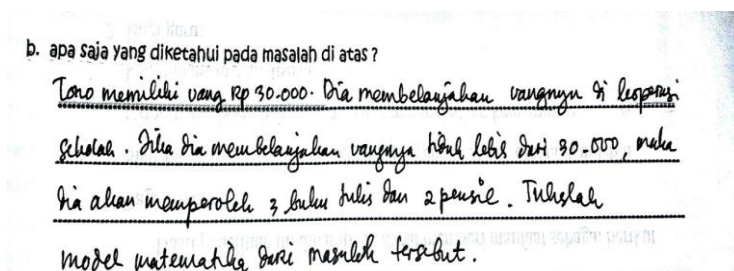 b. apa saja yang diketahui pada masalah di atas?
Tono memiliki uang Rp 30.000. Dia membelanjakan uangnya di koperasi
sekolah. Jika dia membelanjakan uangnya tidak lebih dari 30.000, maka
dia akan memperoleh 3 buku tulis dan 2 pensil. Tulislah
model matematika dari masalah tersebut.